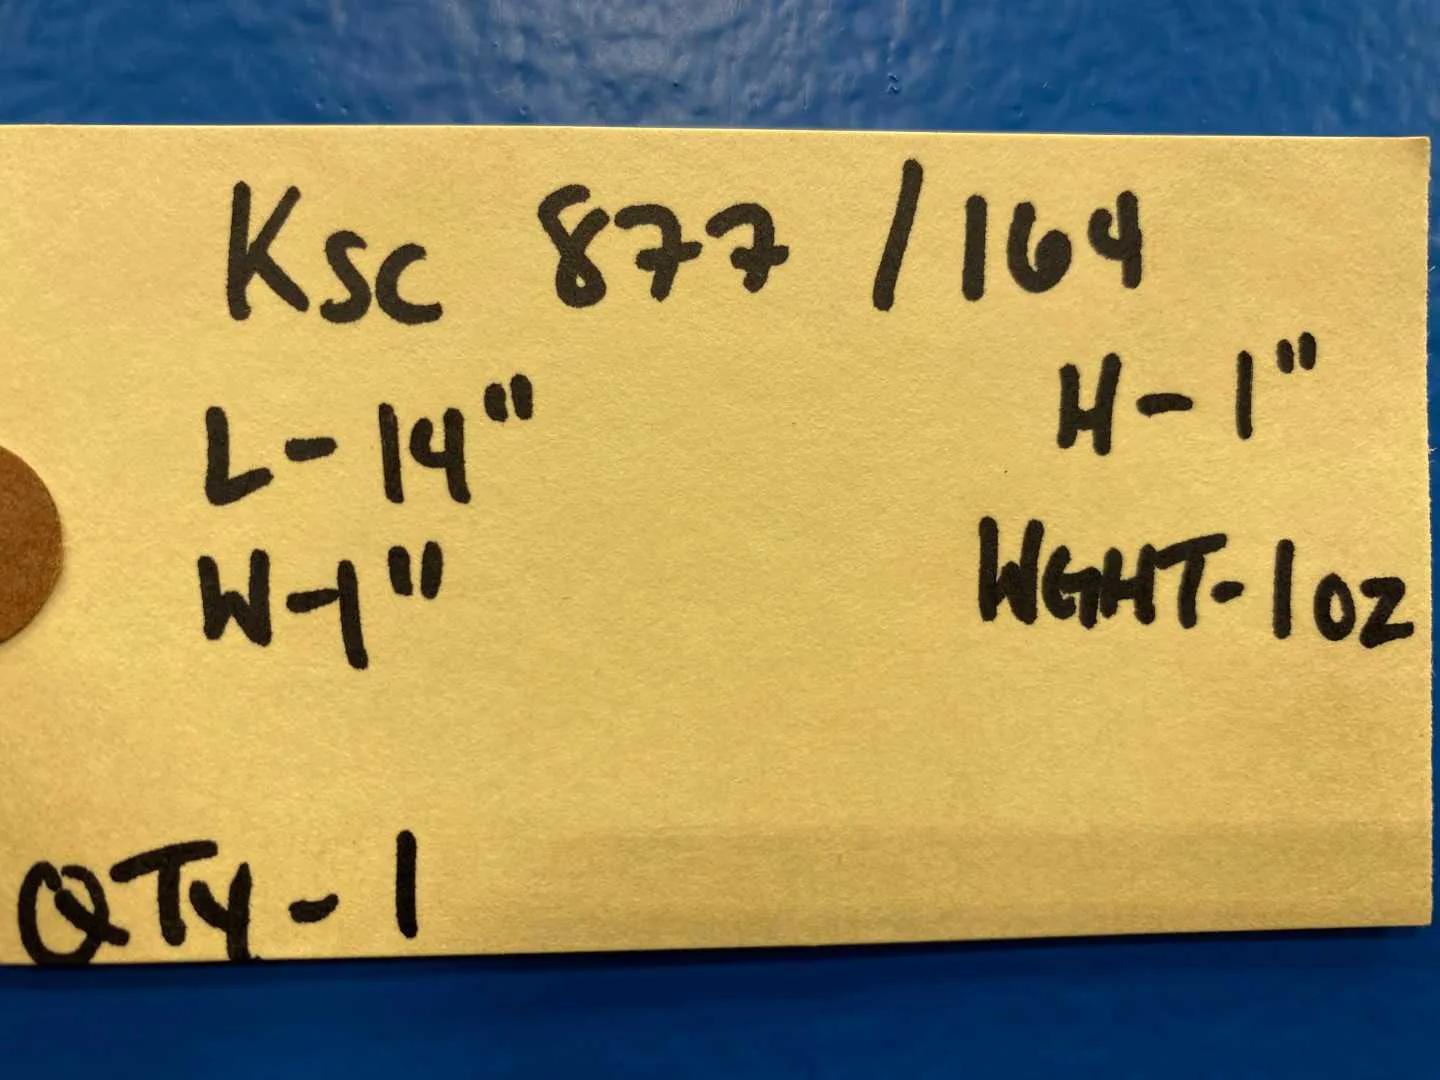 Ksc 877 /164
L-14" H-1"
W-1" WGHT-1oz
QTy-1